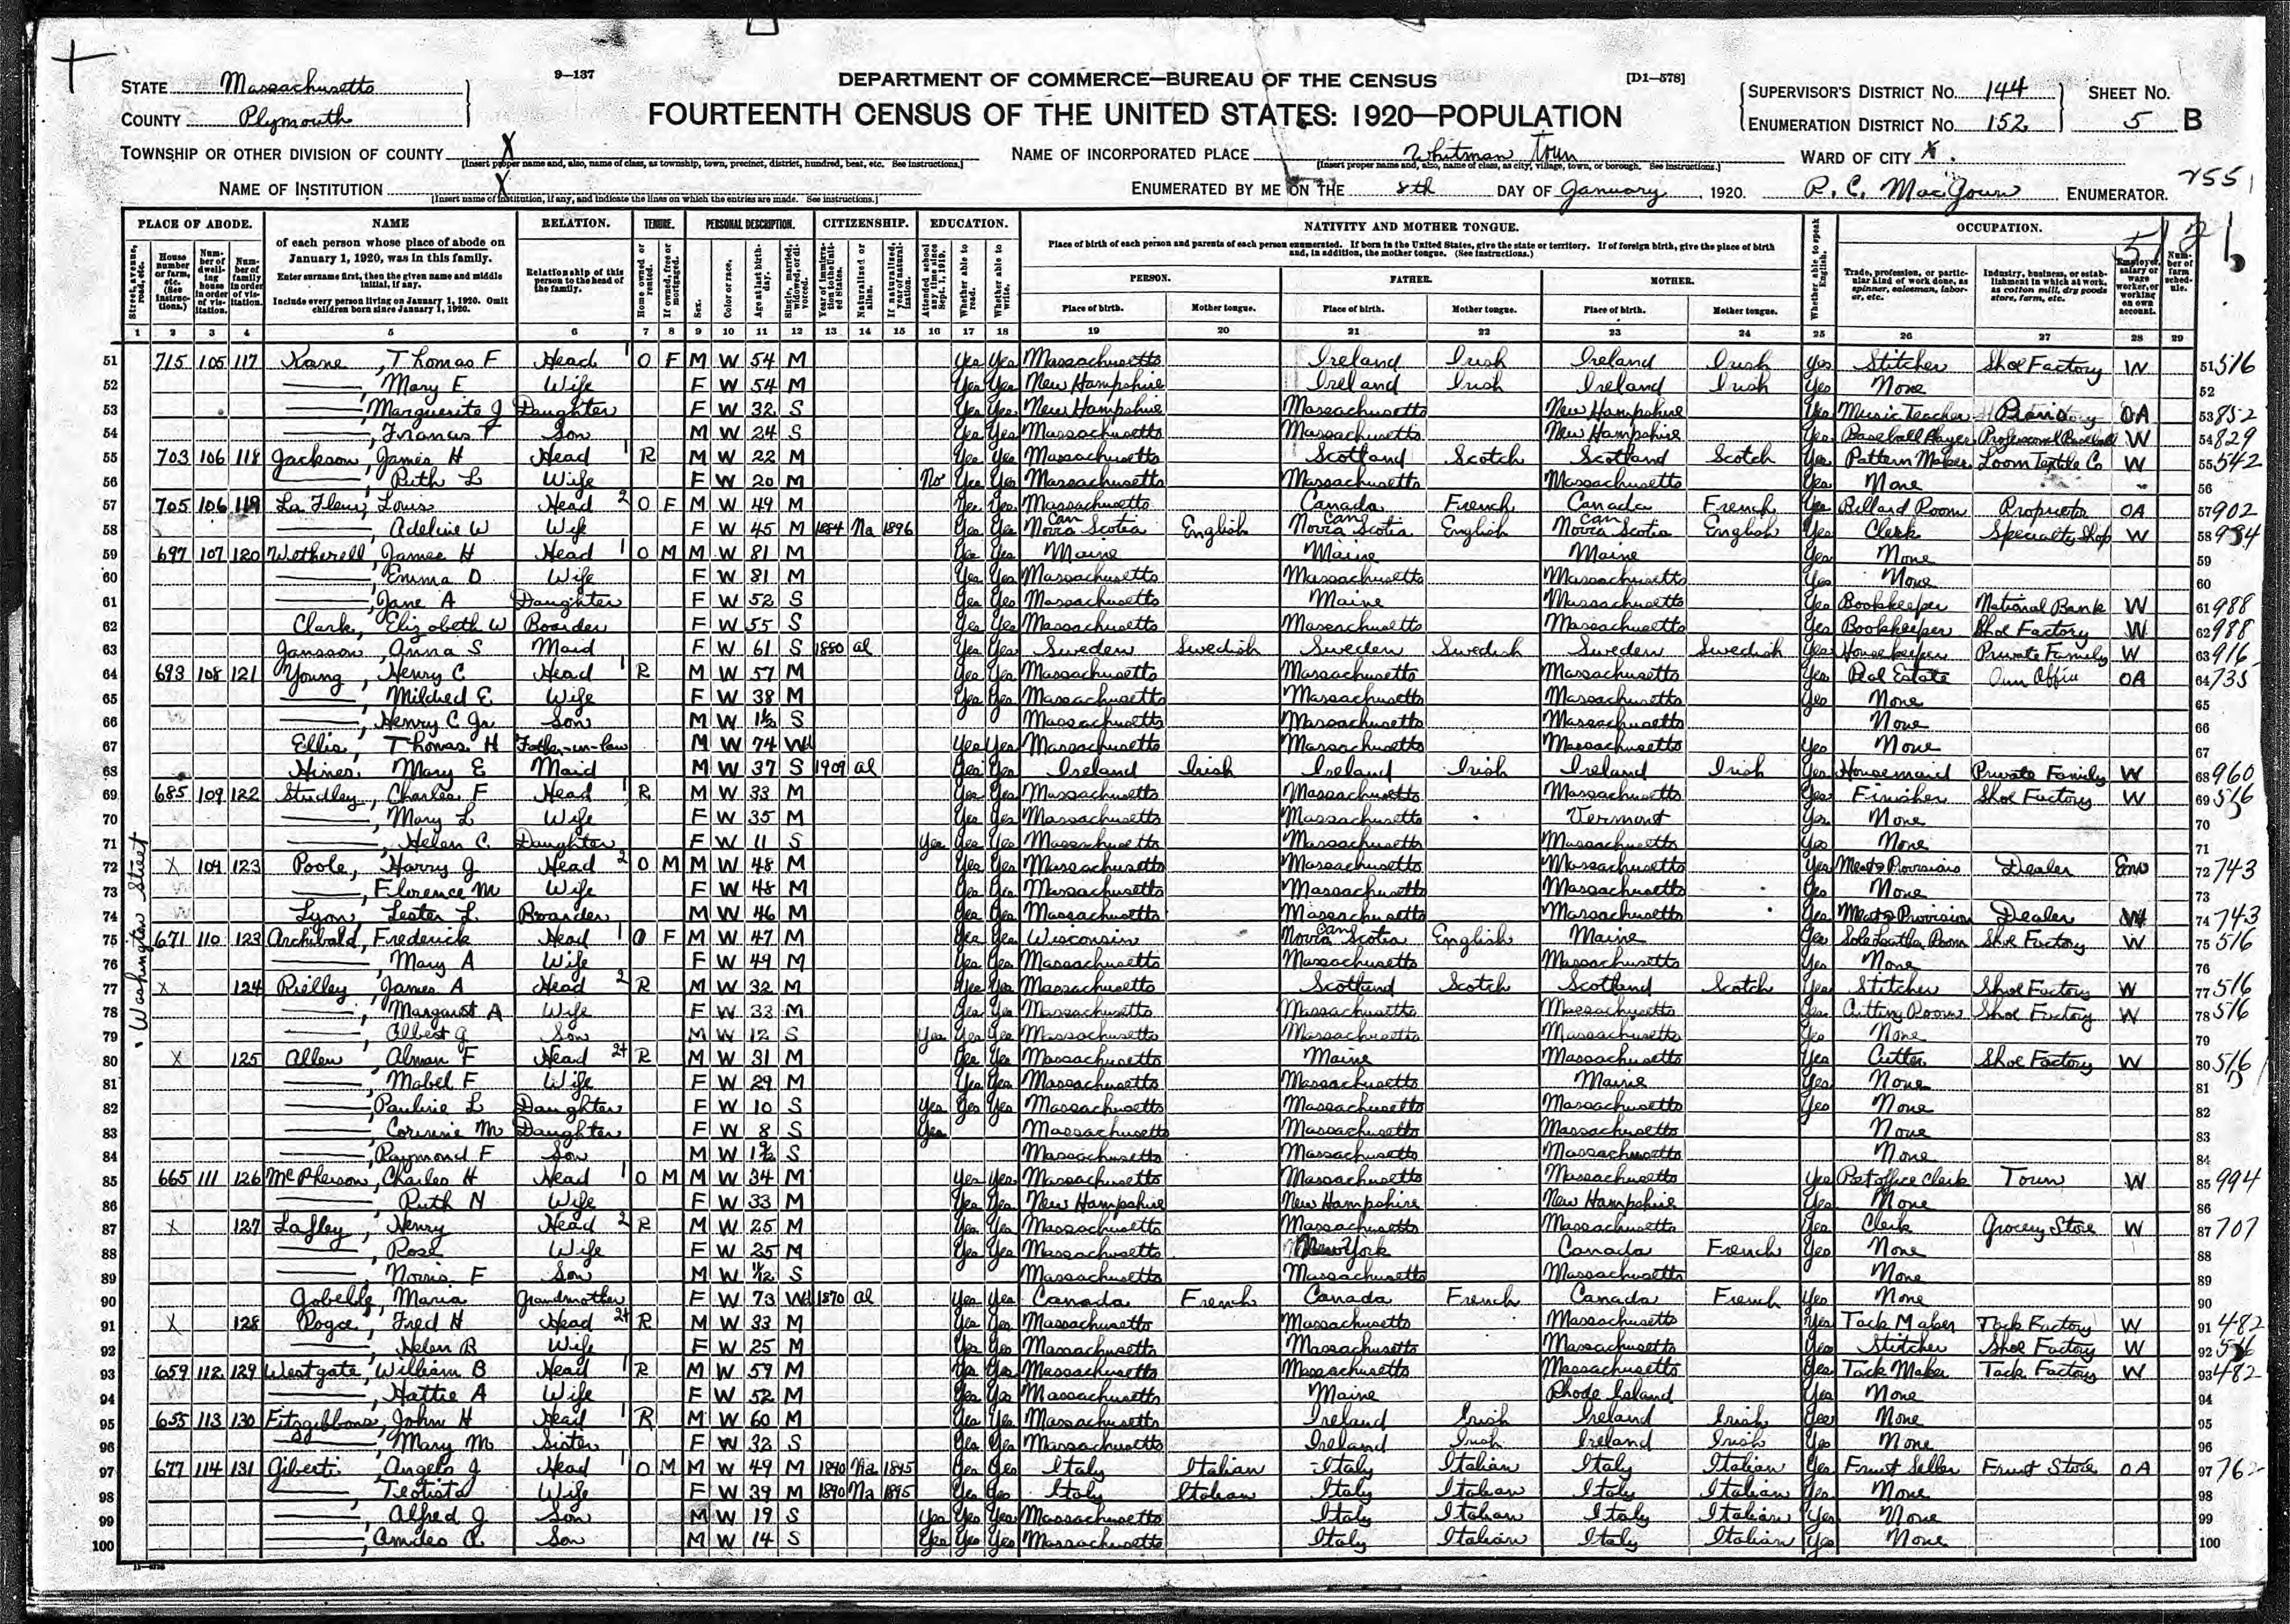 9—137
DEPARTMENT OF COMMERCE—BUREAU OF THE CENSUS
[D1—578]
STATE Massachusetts
COUNTY Plymouth
FOURTEENTH CENSUS OF THE UNITED STATES: 1920—POPULATION
SUPERVISOR'S DISTRICT No. 144
ENUMERATION DISTRICT No. 152
SHEET No. 5 B
TOWNSHIP OR OTHER DIVISION OF COUNTY X
[Insert proper name and, also, name of class, as township, town, precinct, district, hundred, beat, etc. See instructions.]
NAME OF INCORPORATED PLACE Whitman Town
[Insert proper name and, also, name of class, as city, village, town, or borough. See instructions.]
WARD OF CITY X
NAME OF INSTITUTION X
[Insert name of institution, if any, and indicate the lines on which the entries are made. See instructions.]
ENUMERATED BY ME ON THE 8th DAY OF January, 1920. R. C. MacGown ENUMERATOR.
PLACE OF ABODE. NAME RELATION. TENURE. PERSONAL DESCRIPTION. CITIZENSHIP. EDUCATION. NATIVITY AND MOTHER TONGUE. OCCUPATION.
Washington Street
51 715 105 117 Kane, Thomas F Head 1 O F M W 54 M Yes Yes Massachusetts Ireland Irish Ireland Irish Yes Stitcher Shoe Factory W 51 516
52 Mary E Wife F W 54 M Yes Yes New Hampshire Ireland Irish Ireland Irish Yes None 52
53 Marguerite J Daughter F W 32 S Yes Yes New Hampshire Massachusetts New Hampshire Yes Music Teacher Piano OA 53 852
54 Francis T Son M W 24 S Yes Yes Massachusetts Massachusetts New Hampshire Yes Baseball Player Professional Baseball W 54 829
55 703 106 118 Jackson, James H Head 1 R M W 22 M Yes Yes Massachusetts Scotland Scotch Scotland Scotch Yes Pattern Maker Loom Textile Co W 55 542
56 Ruth L Wife F W 20 M No Yes Yes Massachusetts Massachusetts Massachusetts Yes None 56
57 705 106 119 La Fleur, Louis Head 2 O F M W 49 M Yes Yes Massachusetts Canada French Canada French Yes Billard Room Proprietor OA 57 902
58 Adeline W Wife F W 45 M 1884 Na 1896 Yes Yes Can Nova Scotia English Can Nova Scotia English Can Nova Scotia English Yes Clerk Specialty Shop W 58 934
59 697 107 120 Wetherell, James H Head 1 O M M W 81 M Yes Yes Maine Maine Maine Yes None 59
60 Emma D Wife F W 81 M Yes Yes Massachusetts Massachusetts Massachusetts Yes None 60
61 Jane A Daughter F W 52 S Yes Yes Massachusetts Maine Massachusetts Yes Bookkeeper National Bank W 61 988
62 Clark, Elizabeth W Boarder F W 55 S Yes Yes Massachusetts Massachusetts Massachusetts Yes Bookkeeper Shoe Factory W 62 988
63 Jansson, Anna S Maid F W 61 S 1880 al Yes Yes Sweden Swedish Sweden Swedish Sweden Swedish Yes Housekeeper Private Family W 63 916
64 693 108 121 Young, Henry C Head 1 R M W 57 M Yes Yes Massachusetts Massachusetts Massachusetts Yes Real Estate Own Office OA 64 735
65 Mildred E Wife F W 38 M Yes Yes Massachusetts Massachusetts Massachusetts Yes None 65
66 Henry C Jr Son M W S Massachusetts Massachusetts Massachusetts None 66
67 Ellis, Thomas H Father-in-law M W 74 Wd Yes Yes Massachusetts Massachusetts Massachusetts Yes None 67
68 Hines, Mary E Maid M W 37 S 1909 al Yes Yes Ireland Irish Ireland Irish Ireland Irish Yes Housemaid Private Family W 68 960
69 685 109 122 Studley, Charles F Head 1 R M W 33 M Yes Yes Massachusetts Massachusetts Massachusetts Yes Finisher Shoe Factory W 69 516
70 Mary L Wife F W 35 M Yes Yes Massachusetts Massachusetts Vermont Yes None 70
71 Helen C. Daughter F W 11 S Yes Yes Yes Massachusetts Massachusetts Massachusetts Yes None 71
72 X 109 123 Poole, Harry J Head 2 O M M W 48 M Yes Yes Massachusetts Massachusetts Massachusetts Yes Meats Provisions Dealer Em 72 743
73 Florence M Wife F W 48 M Yes Yes Massachusetts Massachusetts Massachusetts Yes None 73
74 Lyon, Lester L Boarder M W 46 M Yes Yes Massachusetts Massachusetts Massachusetts Yes Meats Provision Dealer W 74 743
75 671 110 123 Archibald, Frederick Head 1 O F M W 47 M Yes Yes Wisconsin Can Nova Scotia English Maine Yes Sole Leather Room Shoe Factory W 75 516
76 Mary A Wife F W 49 M Yes Yes Massachusetts Massachusetts Massachusetts Yes None 76
77 X 124 Rielley, James A Head 2 R M W 32 M Yes Yes Massachusetts Scotland Scotch Scotland Scotch Yes Stitcher Shoe Factory W 77 516
78 Margaret A Wife F W 33 M Yes Yes Massachusetts Massachusetts Massachusetts Yes Cutting Room Shoe Factory W 78 516
79 Albert J Son M W 12 S Yes Yes Yes Massachusetts Massachusetts Massachusetts Yes None 79
80 X 125 Allen, Alman F Head 2+ R M W 31 M Yes Yes Massachusetts Maine Massachusetts Yes Cutter Shoe Factory W 80 516
81 Mabel F Wife F W 29 M Yes Yes Massachusetts Massachusetts Maine Yes None 81
82 Pauline L Daughter F W 10 S Yes Yes Yes Massachusetts Massachusetts Massachusetts Yes None 82
83 Corinne M Daughter F W 8 S Yes Massachusetts Massachusetts Massachusetts None 83
84 Raymond F Son M W S Massachusetts Massachusetts Massachusetts None 84
85 665 111 126 McPherson, Charles H Head 1 O M M W 34 M Yes Yes Massachusetts Massachusetts Massachusetts Yes Postoffice Clerk Town W 85 994
86 Ruth N Wife F W 33 M Yes Yes New Hampshire New Hampshire New Hampshire Yes None 86
87 X 127 Lafley, Henry Head 2 R M W 25 M Yes Yes Massachusetts Massachusetts Massachusetts Yes Clerk Grocery Store W 87 707
88 Rose Wife F W 25 M Yes Yes Massachusetts New York Canada French Yes None 88
89 Norris F Son M W S Massachusetts Massachusetts Massachusetts None 89
90 Maria Grandmother F W 73 Wd 1870 al Yes Yes Canada French Canada French Canada French Yes None 90
91 X 128 Fred H Head 2+ R M W 33 M Yes Yes Massachusetts Massachusetts Massachusetts Yes Tack Maker Tack Factory W 91 482
92 Helen B Wife F W 25 M Yes Yes Massachusetts Massachusetts Massachusetts Yes Stitcher Shoe Factory W 92 516
93 659 112 129 Westgate, William B Head 1 R M W 59 M Yes Yes Massachusetts Massachusetts Massachusetts Yes Tack Maker Tack Factory W 93 482
94 Hattie A Wife F W 52 M Yes Yes Massachusetts Maine Rhode Island Yes None 94
95 655 113 130 Fitzgibbons, John H Head 1 R M W 60 M Yes Yes Massachusetts Ireland Irish Ireland Irish Yes None 95
96 Mary M Sister F W 32 S Yes Yes Massachusetts Ireland Irish Ireland Irish Yes None 96
97 677 114 131 Giberti, Angelo J Head 1 O M M W 49 M 1890 Na 1895 Yes Yes Italy Italian Italy Italian Italy Italian Yes Fruit Seller Fruit Store OA 97 762
98 Teotista Wife F W 39 M 1890 Na 1895 Yes Yes Italy Italian Italy Italian Italy Italian Yes None 98
99 Alfred J Son M W 19 S Yes Yes Yes Massachusetts Italy Italian Italy Italian Yes None 99
100 Amdeo A Son M W 14 S Yes Yes Yes Massachusetts Italy Italian Italy Italian Yes None 100